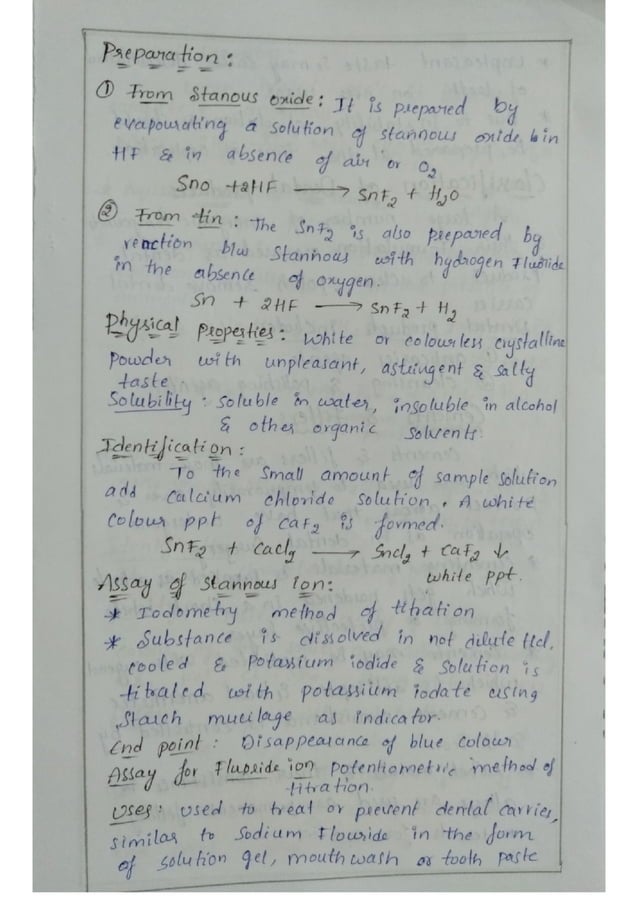 Preparation :
① From Stanous oxide : It is prepared by
evapourating a solution of stannous oxide in
HF & in absence of air or O2
Sno + 2HF → SnF2 + H2O
② From tin : The SnF2 is also prepared by
reaction b/w Stannous with hydrogen Fluoride
in the absence of oxygen.
Sn + 2HF → SnF2 + H2
Physical properties : White or colourless crystalline
Powder with unpleasant, astringent & salty
taste
Solubility : soluble in water, insoluble in alcohol
& other organic solvents.
Identification :
To the small amount of sample solution
add calcium chloride solution. A white
colour ppt of CaF2 is formed.
SnF2 + cacl2 → Sncl2 + CaF2 ↓
white ppt.
Assay of stannous ion :
* Iodometry method of titration
* Substance is dissolved in hot dilute Hcl,
cooled & Potassium iodide & solution is
titrated with potassium iodate using
Starch mucilage as indicator.
End point : Disappearance of blue colour
Assay for Fluoride ion potentiometric method of
titration.
Uses : used to treat or prevent dental carries,
similar to Sodium Flouride in the form
of solution gel, mouth wash or tooth paste